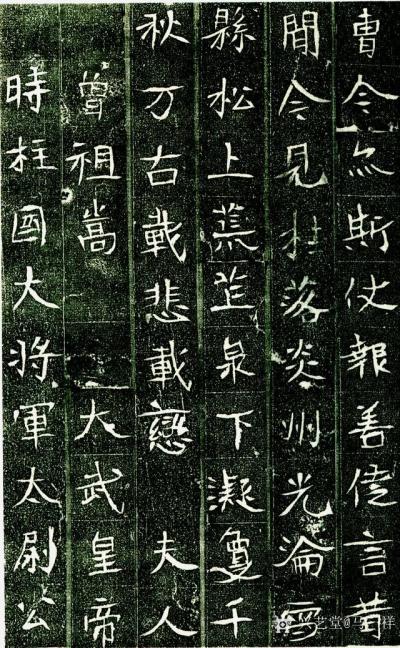 曹令尒斯仗報善徒言昔
聞今見桂落炎州光淪雪
縣松上荒芒泉下凝夐千
秋万古載悲載戀 夫人
曾祖嵩 大武皇帝
時柱國大將軍太尉公
艺堂@马 祥